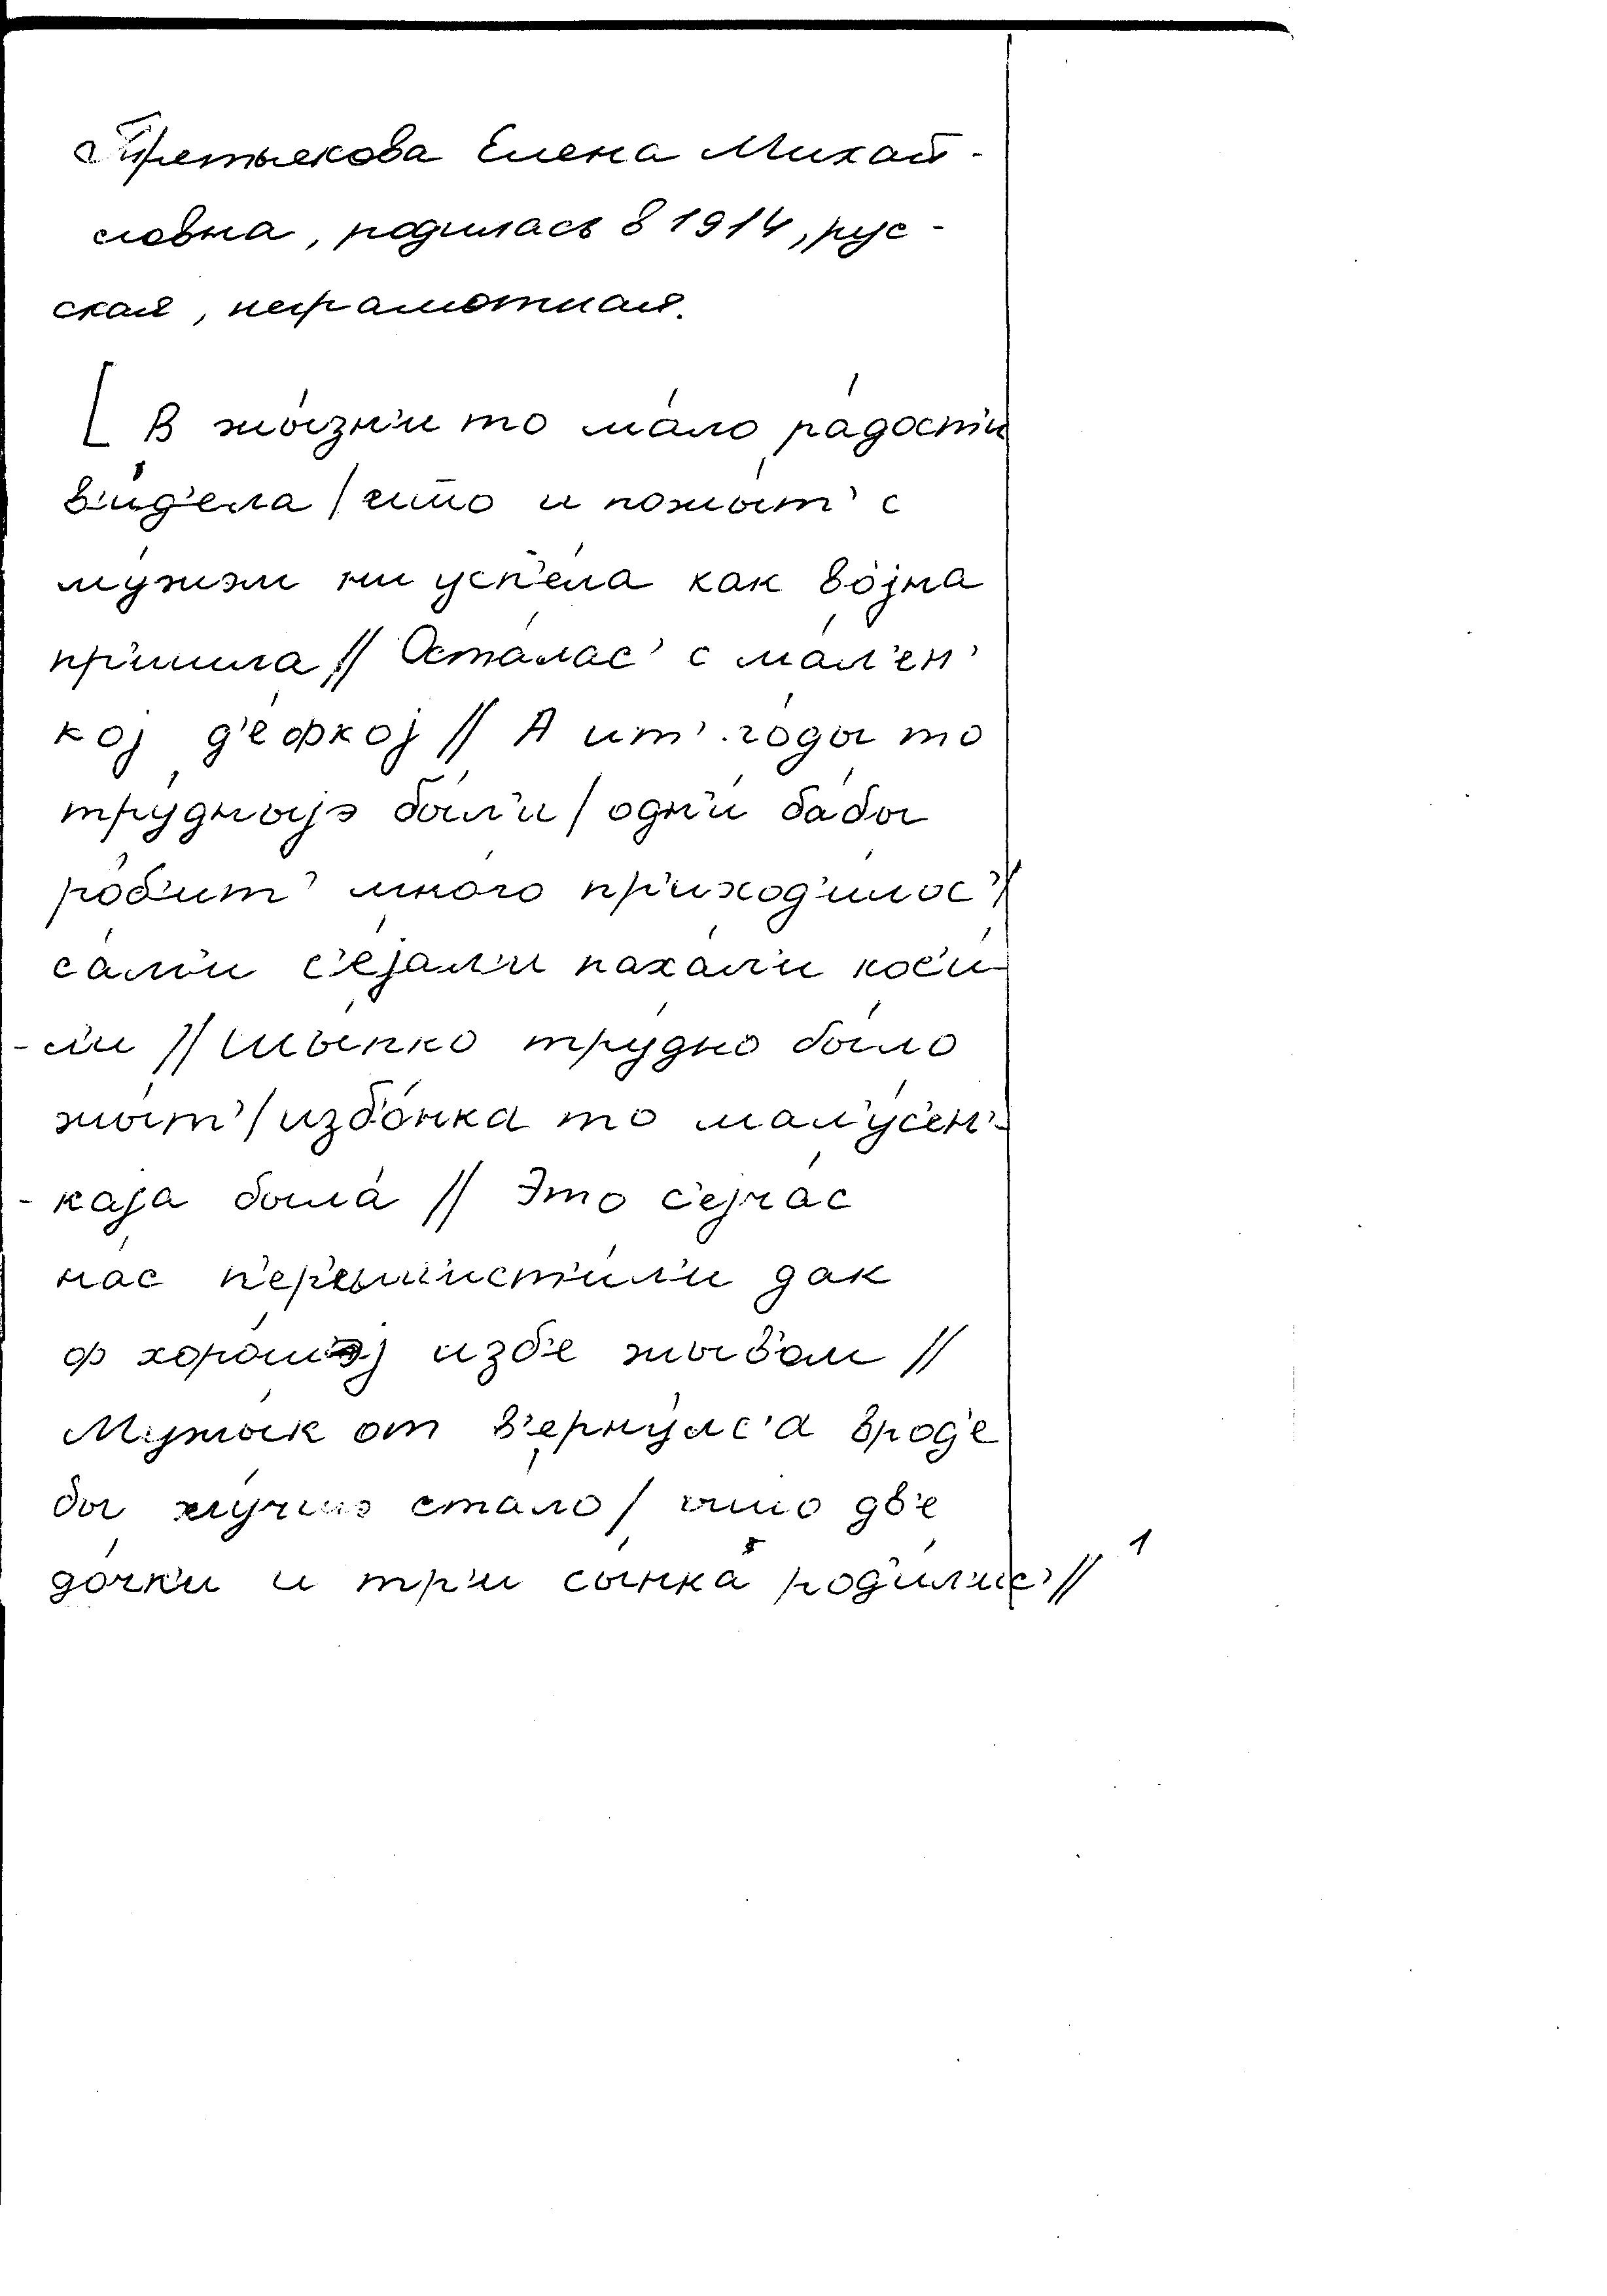 Третьекова Елена Михай-
ловна, родилась в 1914, рус-
ская, неграмотная.
[ В жы́зн'и то ма́ло ра́дост'и
в'и́д'ела / што и пожы́т' с
му́жэм ни усп'е́ла как војна
пр'ишла // Оста́лас' с ма́л'ен'
кој д'е́фкој // А ит' го́ды то
тру́дныјэ бы́л'и / одн'и́ ба́бы
ро́б'ит' мно́го пр'иход'и́лос' /
са́м'и с'е́јал'и паха́л'и кос'и́-
-ли // Шы́пко тру́дно бы́ло
жы́т' / изб'о́нка то мал'у́с'ен'-
-каја была́ // Это с'ејча́с
на́с п'ер'ем'ист'и́л'и дак
ф хоро́шэј изб'е жыв'ом //
Мужы́к от в'ерну́лс'а врод'е
бы лу́чшэ ста́ло / ишшо дв'е
до́чк'и и тр'и сы́нка род'и́л'ис' // 1